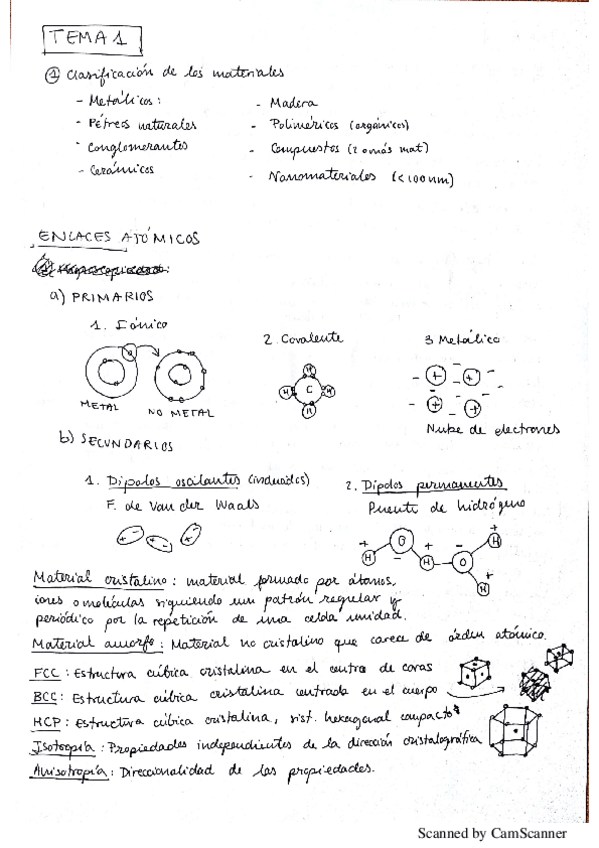 TEMA 1
① Clasificación de los materiales
- Metálicos:
- Pétreos naturales
- Conglomerantes
- Cerámicos
- Madera
- Poliméricos (orgánicos)
- Compuestos (2 o más mat)
- Nanomateriales (<100nm)
ENLACES ATÓMICOS
a) PRIMARIOS
1. Iónico
METAL
NO METAL
2. Covalente
H
H C H
H
3 Metálico
- + - + -
- + - + -
Nube de electrones
b) SECUNDARIOS
1. Dipolos oscilantes (inducidos)
F. de Van der Waals
+ - + - + -
2. Dipolos permanentes
Puente de hidrógeno
+ H O - + H - O + H + H
Material cristalino: material formado por átomos,
iones o moléculas siguiendo un patrón regular y
periódico por la repetición de una celda unidad.
Material amorfo: Material no cristalino que carece de órden atómico.
FCC: Estructura cúbica cristalina en el centro de caras
BCC: Estructura cúbica cristalina centrada en el cuerpo
HCP: Estructura cúbica cristalina, sist. hexagonal compacto
Isotropía: Propiedades independientes de la dirección cristalográfica
Anisotropía: Direccionalidad de las propiedades.
Scanned by CamScanner